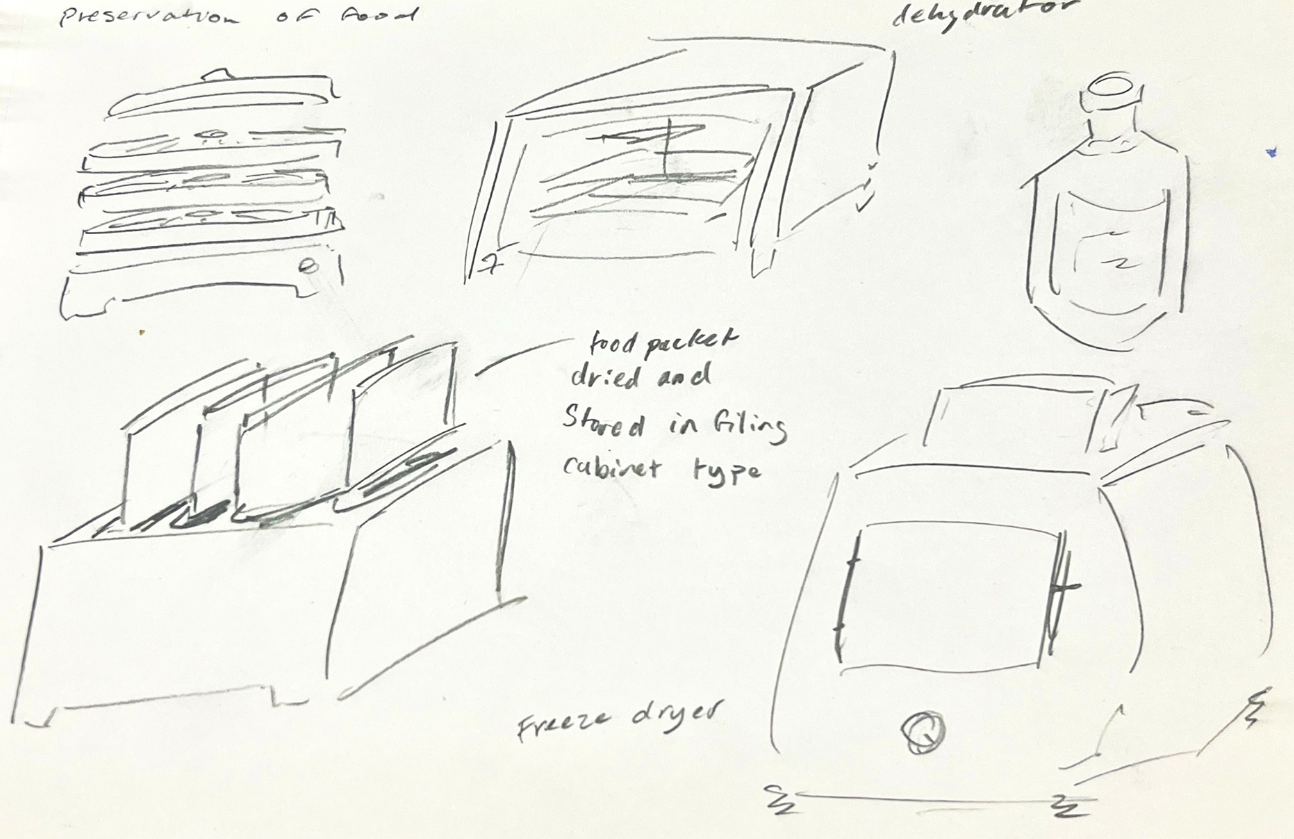 Preservation of food
dehydrator
food packet
dried and
Stored in filing
cabinet type
Freeze dryer